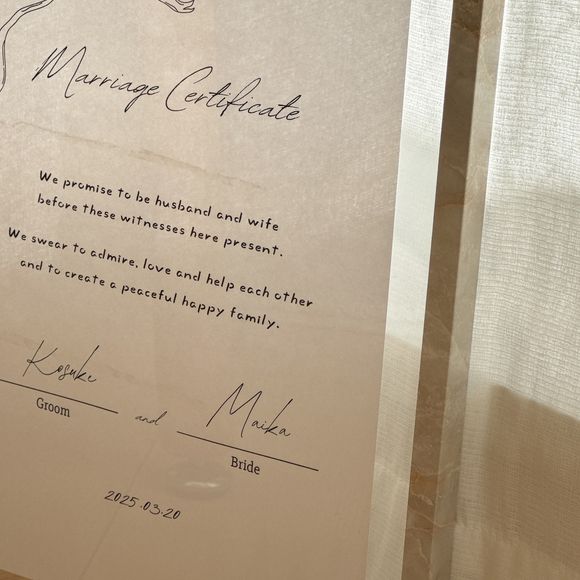 Marriage Certificate
We promise to be husband and wife
before these witnesses here present.
We swear to admire, love and help each other
and to create a peaceful happy family.
Kosuke
Groom
and
Maika
Bride
2025.03.20